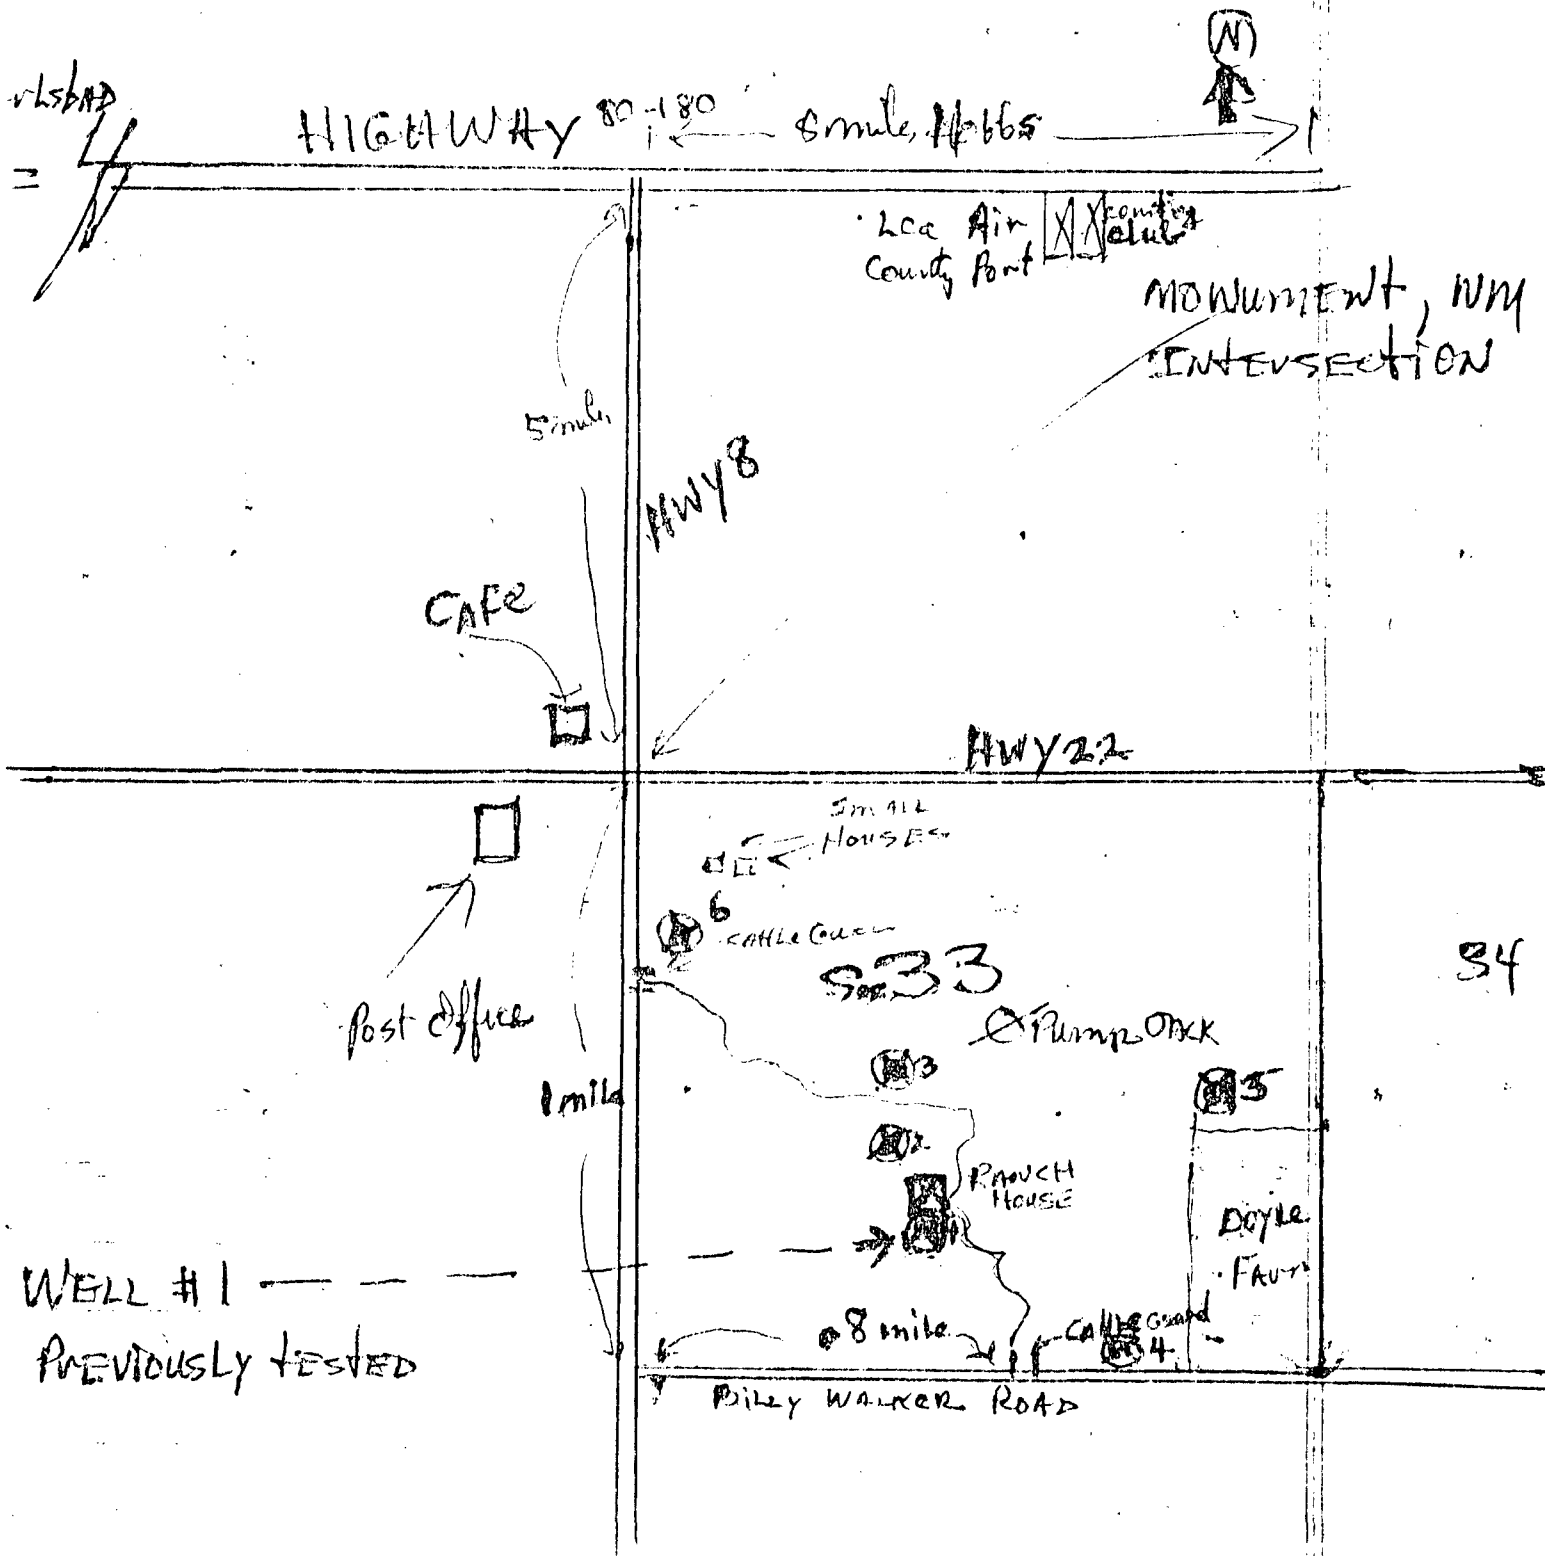 N
HIGHWAY 80-180
8 mile, Hobbs
Lea Air
County Port
Country
Club
MONUMENT, NM
INTERSECTION
5 mile
HWY 8
CAFE
HWY 22
SMALL
HOUSES
6
Sec 33
34
Post Office
Pump Jack
3
5
1 mile
2
RANCH
HOUSE
DOYLE
WELL # 1
PREVIOUSLY TESTED
.8 mile
Cattle Guard
4
BILLY WALKER ROAD